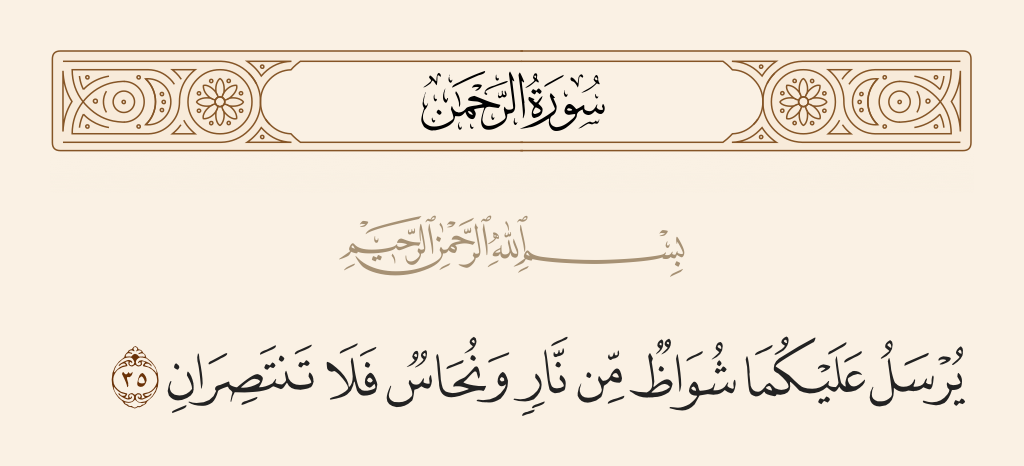 سُورَةُ الرَّحْمَٰن
بِسْمِ ٱللَّهِ ٱلرَّحْمَٰنِ ٱلرَّحِيمِ
يُرْسَلُ عَلَيْكُمَا شُوَاظٌ مِّن نَّارٍ وَنُحَاسٌ فَلَا تَنتَصِرَانِ ٣٥